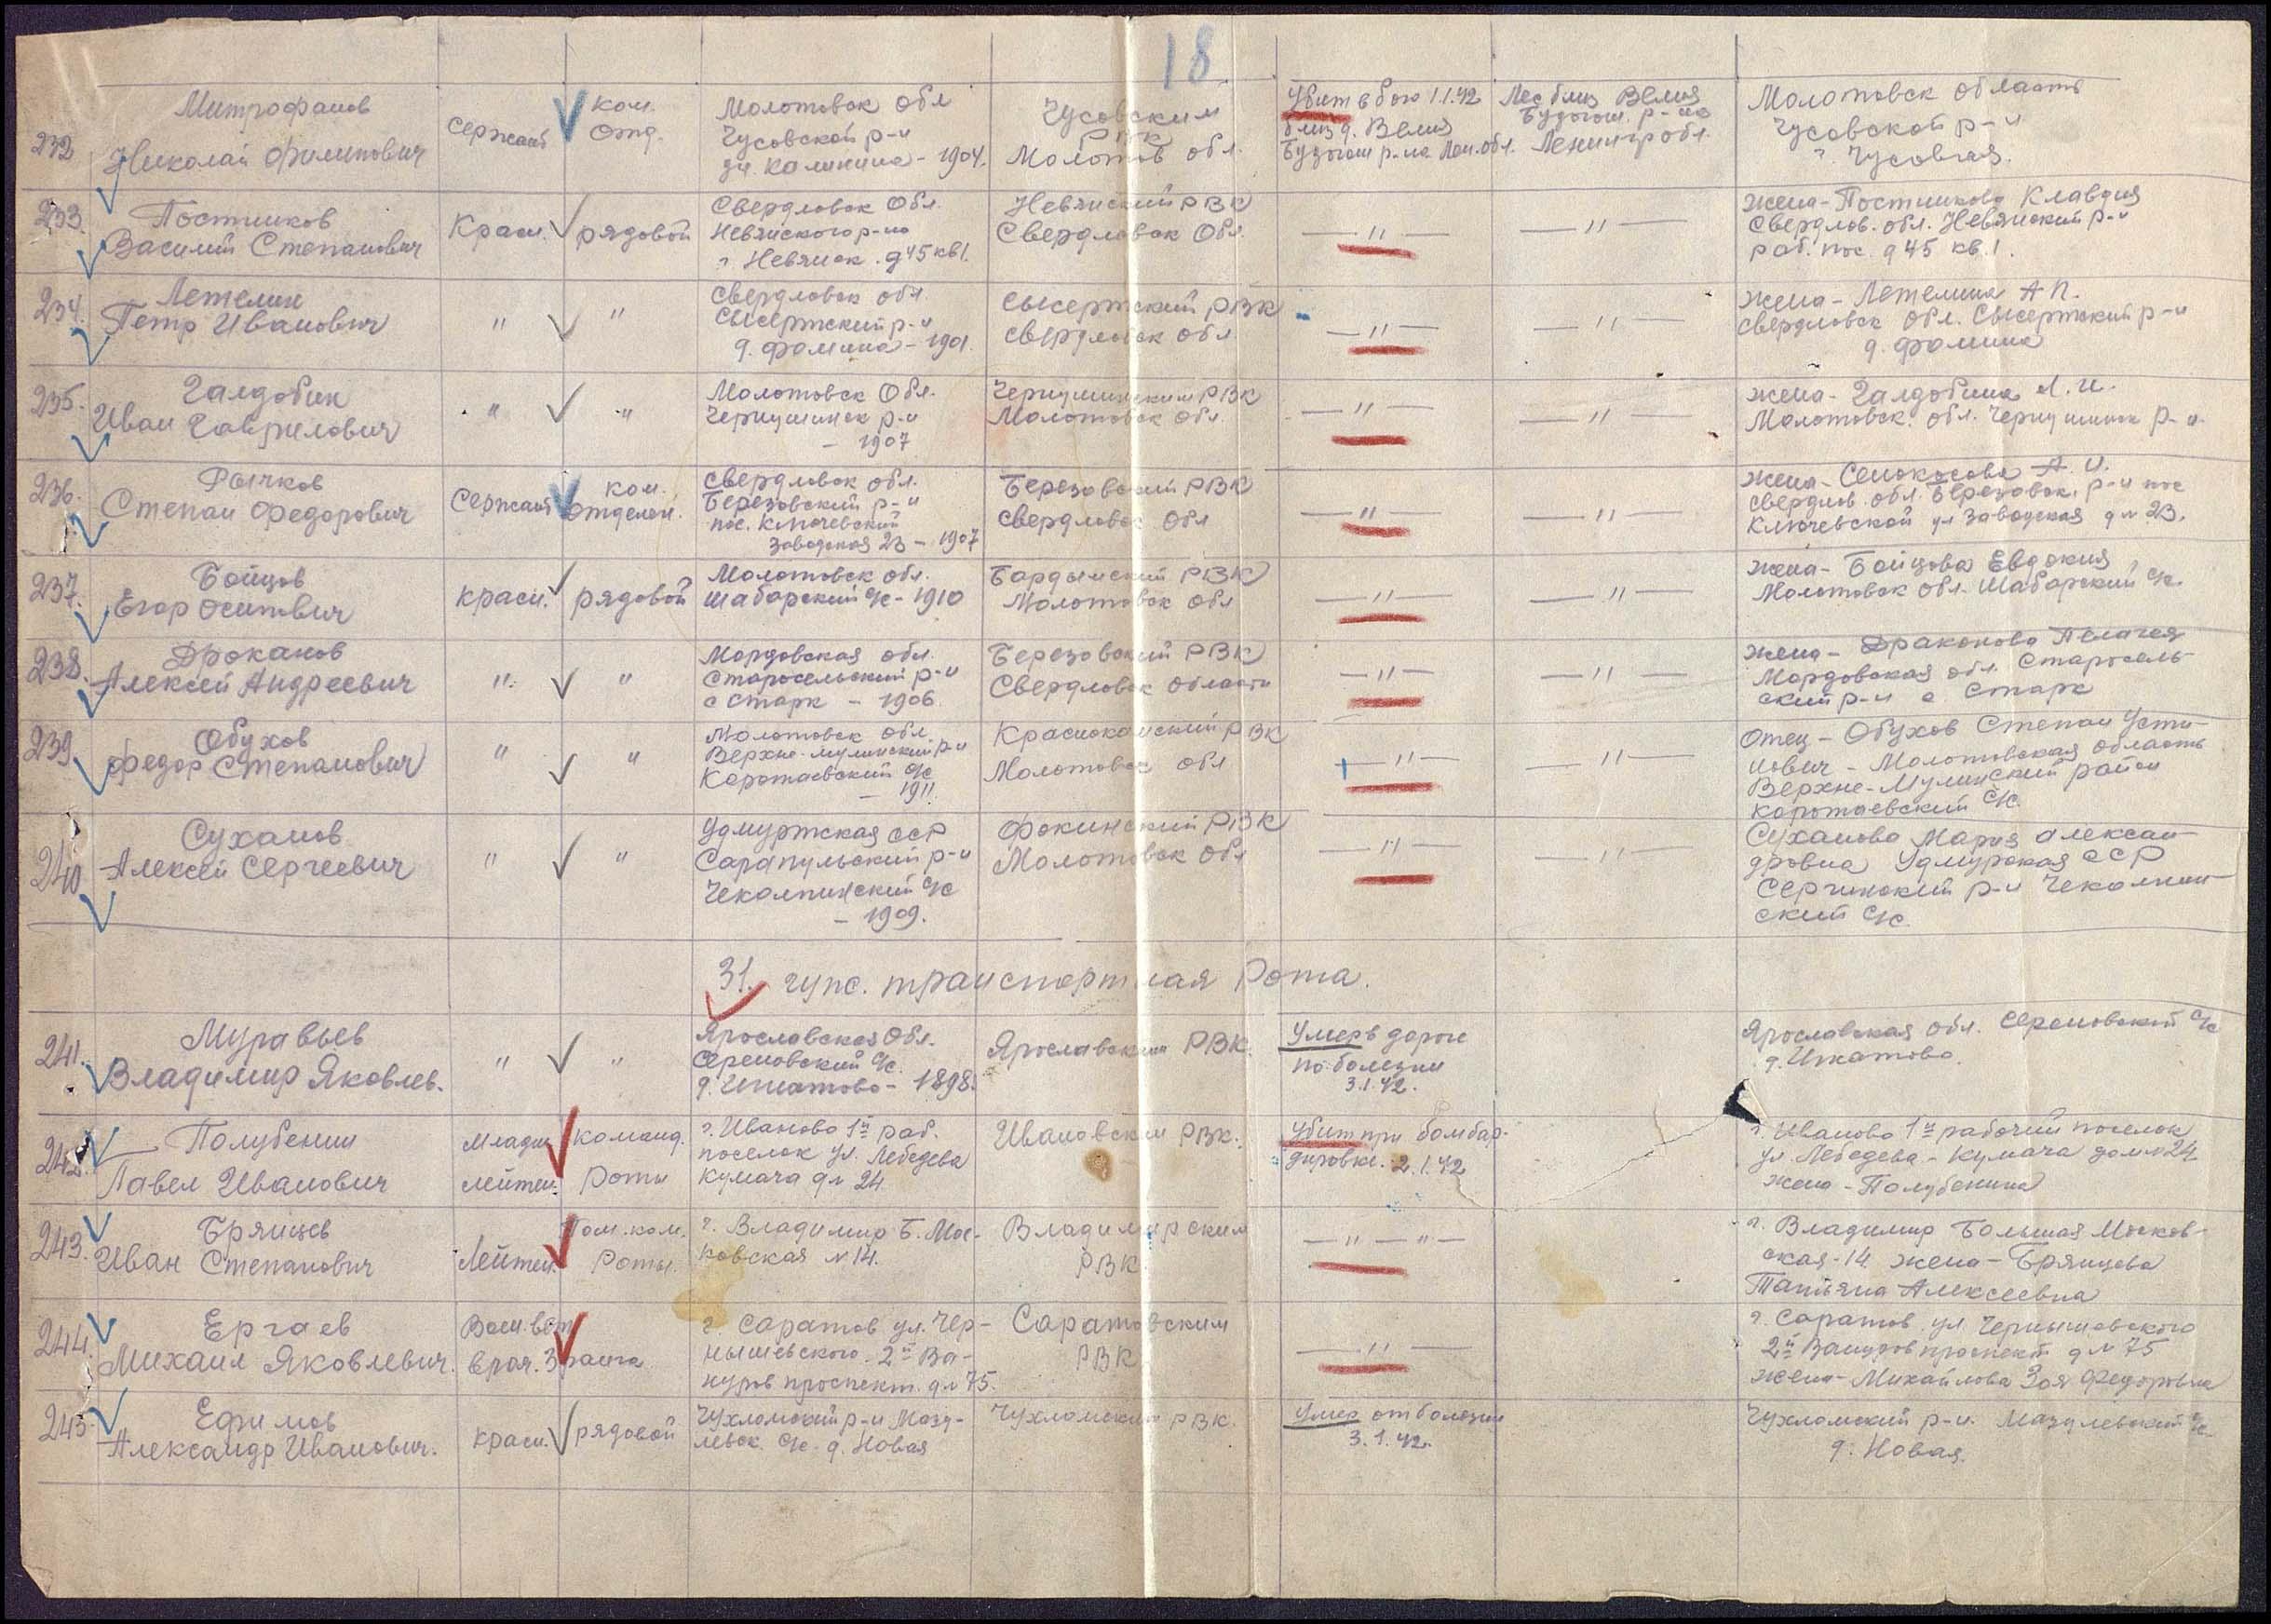 18
232
Митрофанов
Николай Филипович
Сержант
Ком.
Отд.
Молотовск обл
Чусовской р-н
Калинина - 1904.
Чусовским
РВК
Молотов обл.
Убит в бою 1.1.42
близ д. Велия
Будогощ р-на Лен. обл.
Лес близ Велия
Будогощ. р-на
Ленингр обл.
Молотовск область
Чусовской р-н
г. Чусовая.
233.
Постников
Василий Степанович
Красн.
рядовой
Свердловск Обл.
Невянского р-на
г Невянск. д 45 кв 1.
Невянский РВК
Свердловск Обл.
— " —
— " —
жена - Постникова Клавдия
Свердлов. обл. Невянский р-н
раб. пос. д 45 кв. 1.
234.
Летелин
Петр Иванович
"
"
Свердловск обл.
Сысертский р-н
д. Фомина - 1901.
Сысертский РВК
Свердловск обл
— " —
— " —
жена - Летелина А П.
Свердловск обл. Сысертский р-н
д. Фомина
235.
Галдобин
Иван Гаврилович
"
"
Молотовск Обл.
Чернушинск р-н
- 1907
Чернушинским РВК
Молотовск Обл.
— " —
— " —
жена - Галдобина А. И.
Молотовск. обл. Чернушинск р-н.
236.
Рычков
Степан Федорович
Сержант
ком.
отделен.
Свердловск обл.
Березовский р-н
пос. Ключевский
Заводская 23 - 1907
Березовский РВК
Свердловск Обл
— " —
— " —
жена - Сенокосова А. И.
Свердлов. обл. Березовск. р-н пос
Ключевской ул Заводская д № 23.
237.
Бойцов
Егор Осипович
красн.
рядовой
Молотовск обл.
Шабарский с/с - 1910
Бардымский РВК
Молотовск обл
— " —
— " —
жена - Бойцова Евдокия
Молотовск обл. Шабарский с/с.
238.
Дроканов
Алексей Андреевич
"
"
Мордовская обл.
Старосельский р-н
с Старк - 1906.
Березовский РВК
Свердловск области
— " —
— " —
жена - Драконова Пелагея
Мордовская обл. Старосель-
ский р-н с. Старк
239
Обухов
Федор Степанович
"
"
Молотовск обл.
Верхне-Мулинский р-н
Коротаевский с/с
- 1911.
Краснокамский РВК
Молотовск обл
— " —
— " —
Отец - Обухов Степан Усти-
нович - Молотовская область
Верхне-Мулинский район
Коротаевский с/с.
240
Суханов
Алексей Сергеевич
"
"
Удмуртская ССР
Сарапульский р-н
Чекалнинский с/с
- 1909.
Фокинский РВК
Молотовск Обл
— " —
— " —
Суханова Мария Алексан-
дровна Удмурская ССР
р-н Чекалнин-
ский с/с.
31. гупс. транспортная Рота.
241.
Муравьев
Владимир Яковлев.
"
"
Ярославская Обл.
Сереновский с/с.
д. Игнатово - 1898.
Ярославским РВК.
Умер в дороге
по болезни
3.1.42.
Ярославская обл. Сереновский с/с
д. Игнатово.
242.
Полубенин
Павел Иванович
Младш
лейтен.
команд.
Роты
г. Иваново 1й раб.
поселок ул. Лебедева
Кумача д № 24
Ивановским РВК.
Убит при бомбар-
дировке. 2.1.42
г. Иваново 1й рабочий поселок
ул. Лебедева - Кумача дом № 24
жена - Полубенина
243.
Брянцев
Иван Степанович
Лейтен.
Пом. ком.
Роты.
г. Владимир Б. Мос-
ковская № 14.
Владимирским
РВК
— " — " —
г. Владимир Большая Москов-
ская - 14 жена - Брянцева
Татьяна Алексеевна
244.
Ергаев
Михаил Яковлевич.
Воен. вет
врач. 3 ранга
г. Саратов ул. Чер-
нышевского. 2й Ва-
нуров проспект. д № 75.
Саратовским
РВК
— " —
г. Саратов ул. Чернышевского
2й Вануров проспект д № 75
жена - Михайлова Зоя Федоровна
245.
Ефимов
Александр Иванович.
красн.
рядовой
Чухломский р-н Мазу-
левск. с/с. д. Новая
Чухломским РВК.
Умер от болезни
3.1.42.
Чухломский р-н. Мазулевский с/с.
д. Новая.